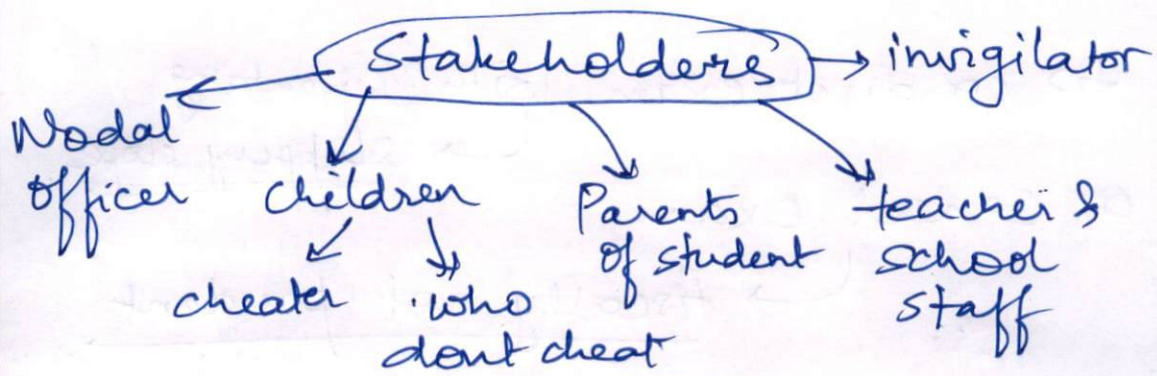 Stakeholders → invigilator
Nodal
officer
Children
cheater
who
dont cheat
Parents
of student
teacher &
school
staff